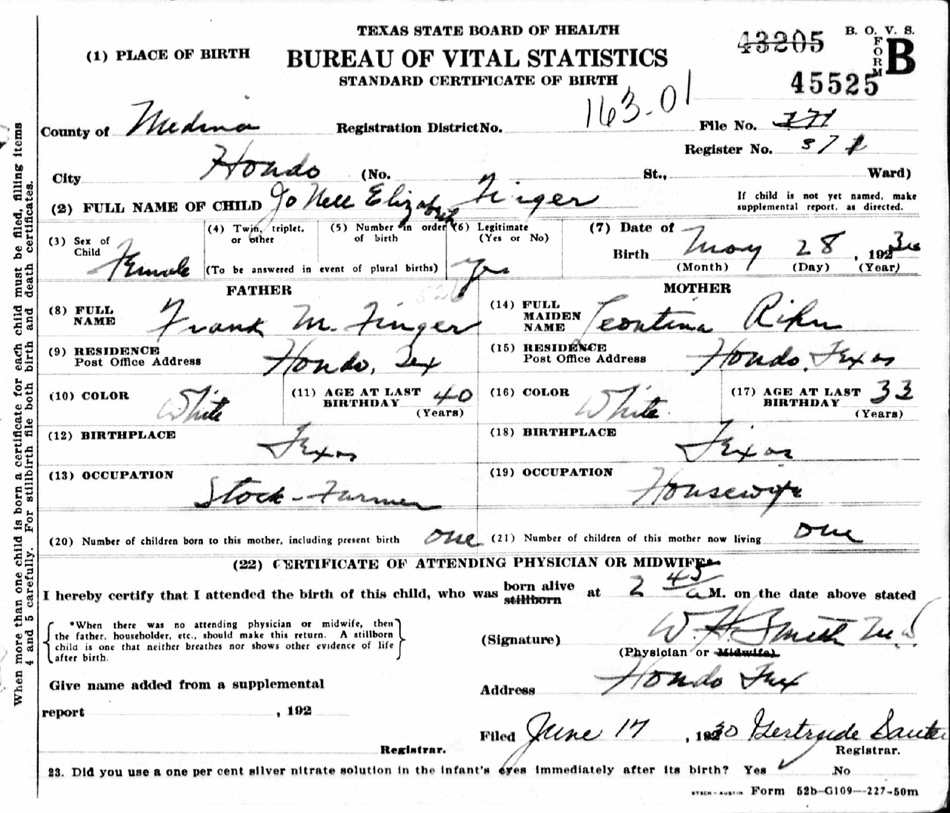 TEXAS STATE BOARD OF HEALTH
B. O. V. S.
(1) PLACE OF BIRTH
BUREAU OF VITAL STATISTICS
43205
FORM B
STANDARD CERTIFICATE OF BIRTH
45525
County of Medina Registration District No. 163-01 File No. 371
Register No. 371
City Hondo (No. St., Ward)
(2) FULL NAME OF CHILD Jo Nell Elizabeth Finger
If child is not yet named, make
supplemental report, as directed.
(3) Sex of Child Female
(4) Twin, triplet, or other
(5) Number in order of birth
(To be answered in event of plural births)
(6) Legitimate (Yes or No) Yes
(7) Date of Birth May 28, 1930
(Month) (Day) (Year)
FATHER
(8) FULL NAME Frank M. Finger
(9) RESIDENCE Post Office Address Hondo, Tex
(10) COLOR White (11) AGE AT LAST BIRTHDAY 40 (Years)
(12) BIRTHPLACE Texas
(13) OCCUPATION Stock-Farmer
MOTHER
(14) FULL MAIDEN NAME Leontina Rihn
(15) RESIDENCE Post Office Address Hondo, Texas
(16) COLOR White (17) AGE AT LAST BIRTHDAY 33 (Years)
(18) BIRTHPLACE Texas
(19) OCCUPATION Housewife
(20) Number of children born to this mother, including present birth one (21) Number of children of this mother now living one
(22) CERTIFICATE OF ATTENDING PHYSICIAN OR MIDWIFE*
I hereby certify that I attended the birth of this child, who was born alive stillborn at 2 45 a M. on the date above stated
*When there was no attending physician or midwife, then
the father, householder, etc., should make this return. A stillborn
child is one that neither breathes nor shows other evidence of life
after birth.
(Signature) W. H. Smith M.D.
(Physician or Midwife)
Give name added from a supplemental
Address Hondo Tex
report , 192
Filed June 17, 1930 Gertrude Sauter
Registrar. Registrar.
23. Did you use a one per cent silver nitrate solution in the infant's eyes immediately after its birth? Yes ✓ No
STECK-AUSTIN Form 52b-G109-227-50m
When more than one child is born a certificate for each child must be filed, filling items
4 and 5 carefully. For stillbirth file both birth and death certificates.